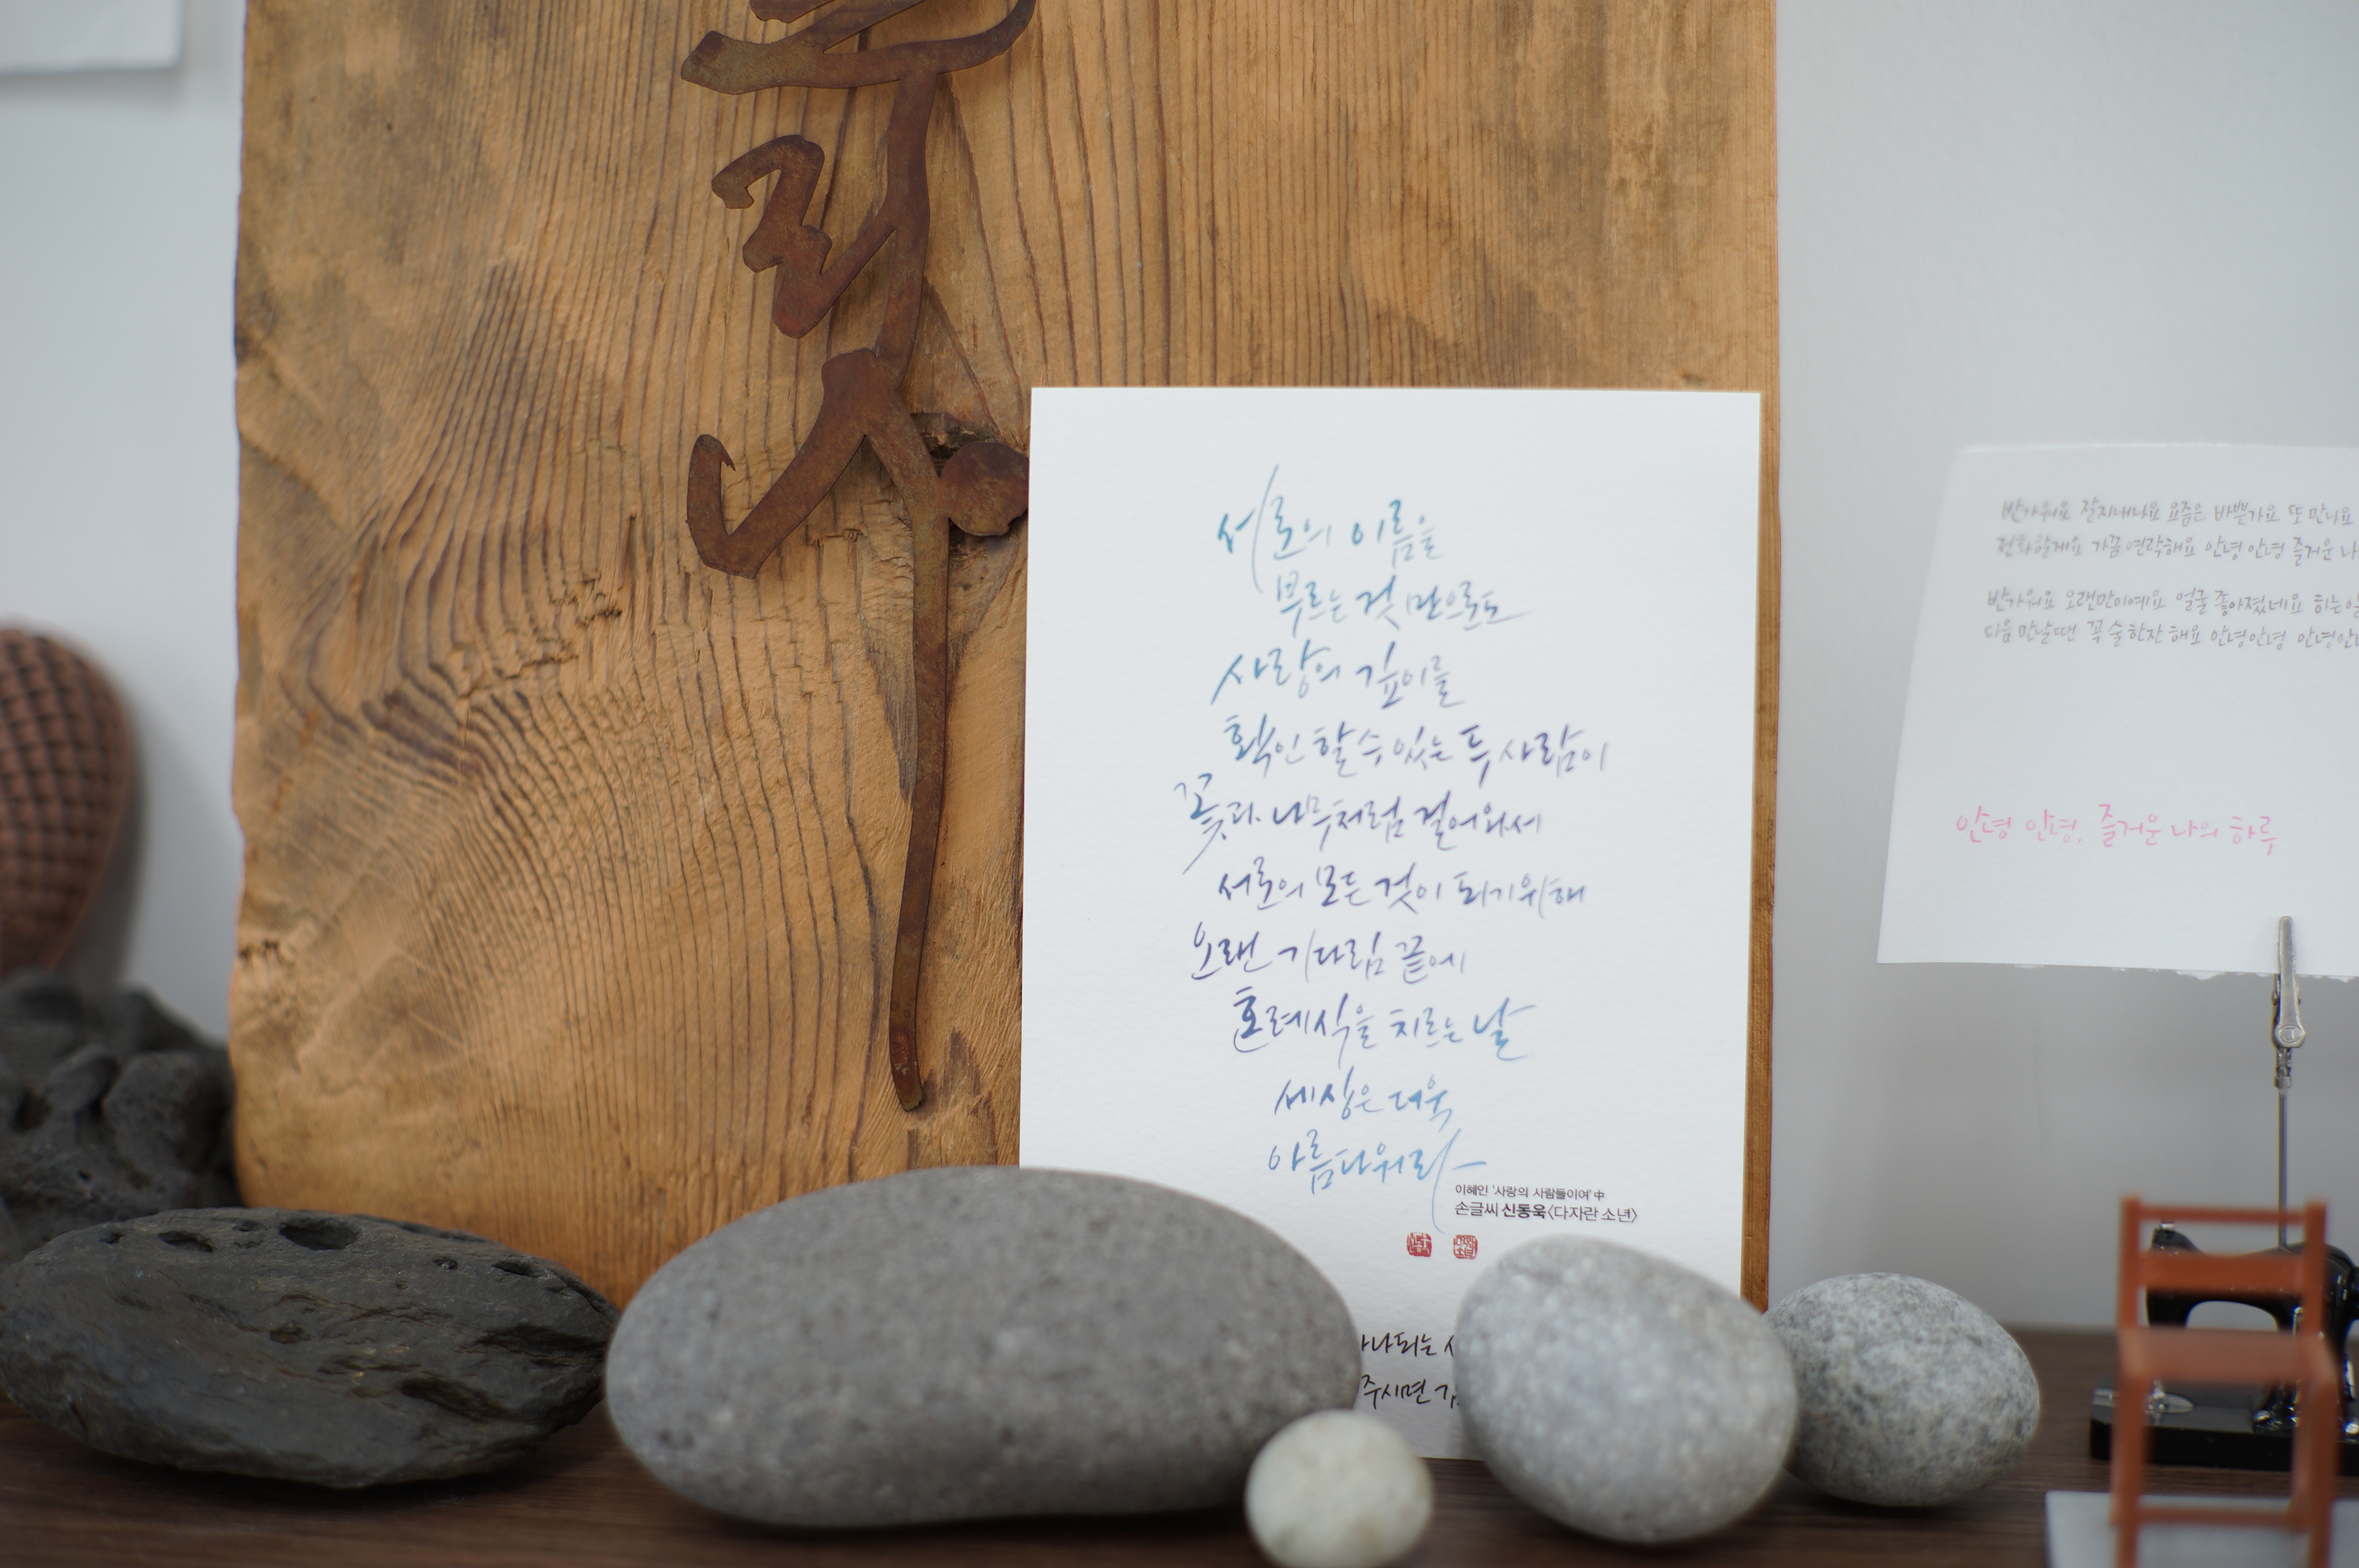 서로의 이름을
부르는 것 만으로도
사랑의 깊이를
확인 할 수 있는 두 사람이
꽃과 나무처럼 걸어와서
서로의 모든 것이 되기위해
오랜 기다림 끝에
혼례식을 치르는 날
세상은 더욱
아름다워라
이혜인 '사랑의 사람들이여' 中
손글씨 신동욱〈다자란 소년〉
나되는
주시면
반가워요 잘지내나요 요즘은 바쁜가요 또 만나요
전화할게요 가끔 연락해요 안녕 안녕 즐거운 나
반가워요 오랜만이예요 얼굴 좋아졌네요 하는
다음 만날땐 꼭 술 한잔 해요 안녕안녕
안녕 안녕, 즐거운 나의 하루